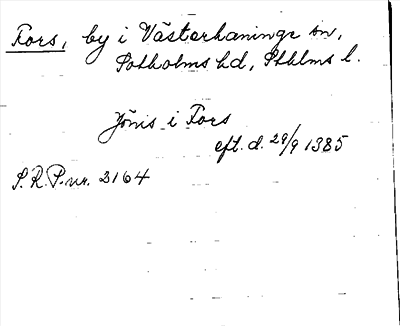 Fors, by i Västerhaninge sn,
Sotholms hd, Sthlms l.
Jönis i Fors
eft. d. 29/9 1385
S.R.P. nr. 2164